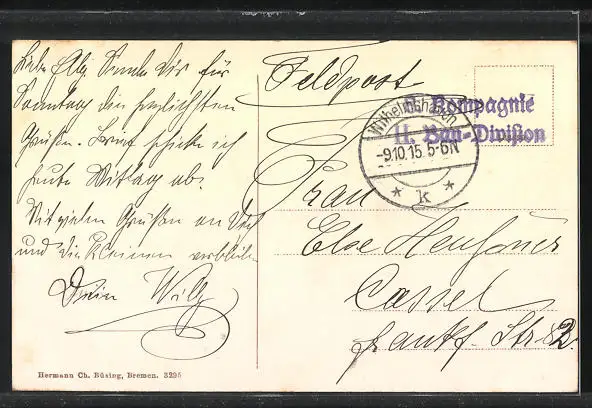 Liebe Elz. Sende Dir für
Sonntag die herzlichsten
Grüße. Brief schicke ich
heute Mittag ab.
Mit vielen Grüßen an Dich
und die Kleinen verbleibe
Dein Willy
Hermann Ch. Büsing, Bremen. 3295
Feldpost
Kompagnie
II. Bau-Division
Wilhelmshaven
-9.10.15. 5-6N
* k *
Frau
Else
Cassel
Frankf. Str. 82.